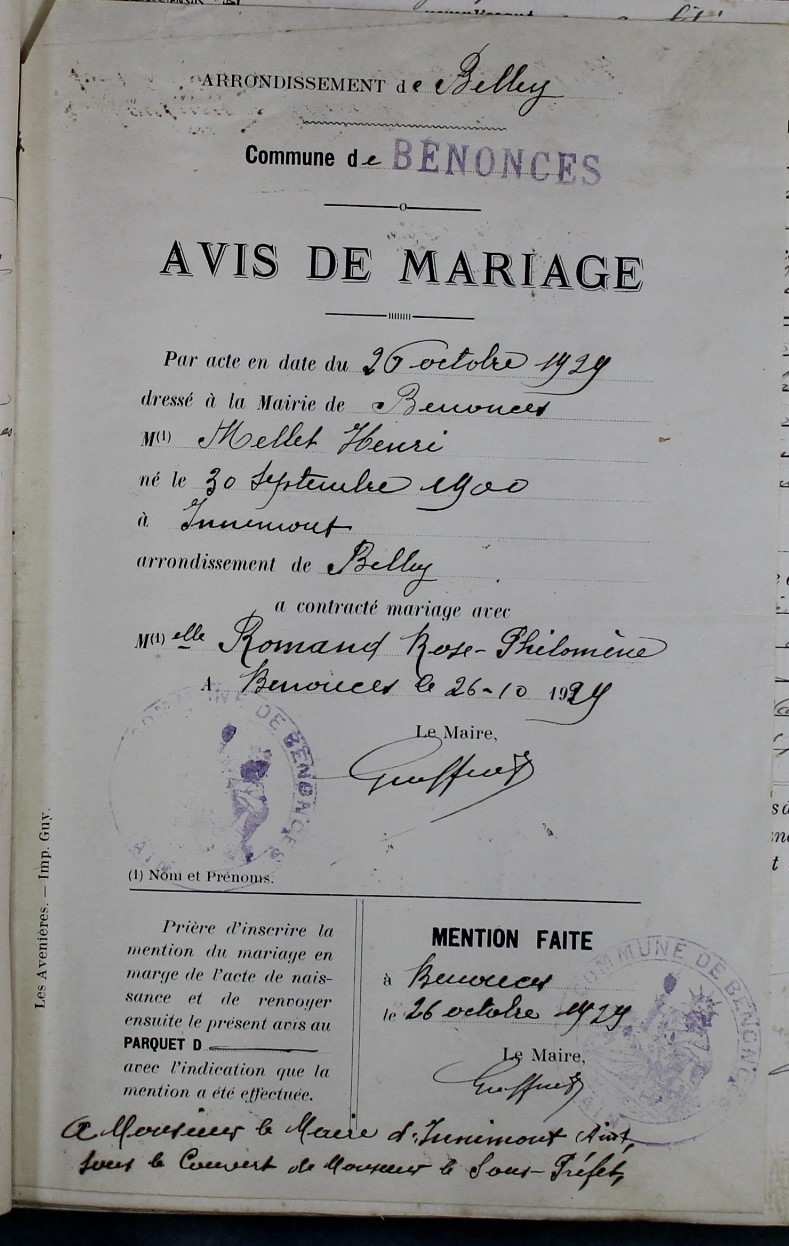 ARRONDISSEMENT de Belley
Commune de BÉNONCES
AVIS DE MARIAGE
Par acte en date du 26 octobre 1929
dressé à la Mairie de Benonces
M(1) Mellet Henri
né le 30 Septembre 1900
à Innimont
arrondissement de Belley
a contracté mariage avec
M(1) elle Romand Rose-Philomène
A Benonces le 26-10 1929
Le Maire,
COMMUNE DE BÉNONCES
AIN
(1) Nom et Prénoms.
Les Avenières. — Imp. Guy.
Prière d'inscrire la
mention du mariage en
marge de l'acte de nais-
sance et de renvoyer
ensuite le présent avis au
PARQUET D
avec l'indication que la
mention a été effectuée.
MENTION FAITE
à Benonces
le 26 octobre 1929
Le Maire,
COMMUNE DE BÉNONCES
AIN
A Monsieur le Maire d'Innimont Ain,
sous le Couvert de Monsieur le Sous-Préfet,